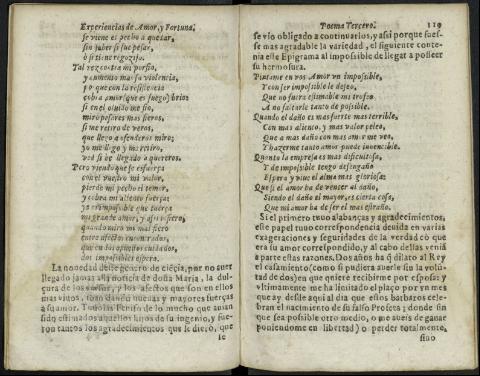 Experiencias de Amor, y Fortuna.
se viene el pecho a quexar,
sin saber si fue pesar,
ò si tiene regozijo.
Tal vez contra mi porfio,
y aumento mas su violencia,
porque con la resistencia
cobra amor (que es fuego) brio:
si en el oluido me fio,
miro pesares mas fieros,
si me retiro de veros,
que llego a ofenderos miro;
yo me llego y me retiro,
ved si he llegado a quereros.
Pero viendo que se esfuerça
en el vuestro mi valor,
pierde mi pecho el temor,
y cobra mi aliento fuerça:
ya es impossible que tuerça
mi grande amor, y assi espero,
quando miro mi mal fiero
entre afectos encontrados,
que en los opuestos cuidados,
dos impossibles espero.
La nouedad deste genero de ciẽcia, por no auer
llegado jamas a la noticia de doña Maria, la dul-
çura de los versos, y los afectos que son en ellos
mas viuos, iban dando nueuas y mayores fuerças
a su amor. Tuuo las Feniso de lo mucho que auian
sido estimados aquellos hijos de su ingenio, y fue-
ron tantos los agradecimientos que le dieron, que
se
Poema Tercero. 119
se vio obligado a continuarlos, y assi porque fues-
se mas agradable la variedad, el siguiente conte-
nia este Epigrama al impossible de llegar a posseer
su hermosura.
Pintame en vos Amor vn impossible,
Y con ser impossible le desseo,
Que no fuera estimable mi trofeo
A no faltarle tanto de possible.
Quando el daño es mas fuerte mas terrible,
Con mas aliento, y mas valor peleo,
Que a mas daño con mas amor me veo,
Y hazerme tanto amor puede inuencible.
Quanto la empresa es mas dificultosa,
Y de impossible tengo desengaño
Espera y viue el alma mas gloriosa:
Que si el amor ha de vencer al daño,
Siendo el daño el mayor, es cierta cosa,
Que mi amor ha de ser el mas estraño.
Si el primero tuuo alabanças y agradecimientos,
este papel tuuo correspondencia deuida en varias
exageraciones y seguridades de la verdad cõ que
era su amor correspondido, y al cabo dellas venia
a parte estas razones. Dos años ha q̃ dilato al Rey
el casamiento (como si pudiera auerle sin la volũ-
tad de dos) en que quiere recibirme por esposa: y
vltimamente me ha limitado el plaço por vn mes
que ay desde aqui al dia que estos barbaros cele-
bran el nacimiento de su falso Profeta; donde sin
que sea possible otro medio, o me aueis de ganar
poniendome en libertad) o perder totalmente,
sino